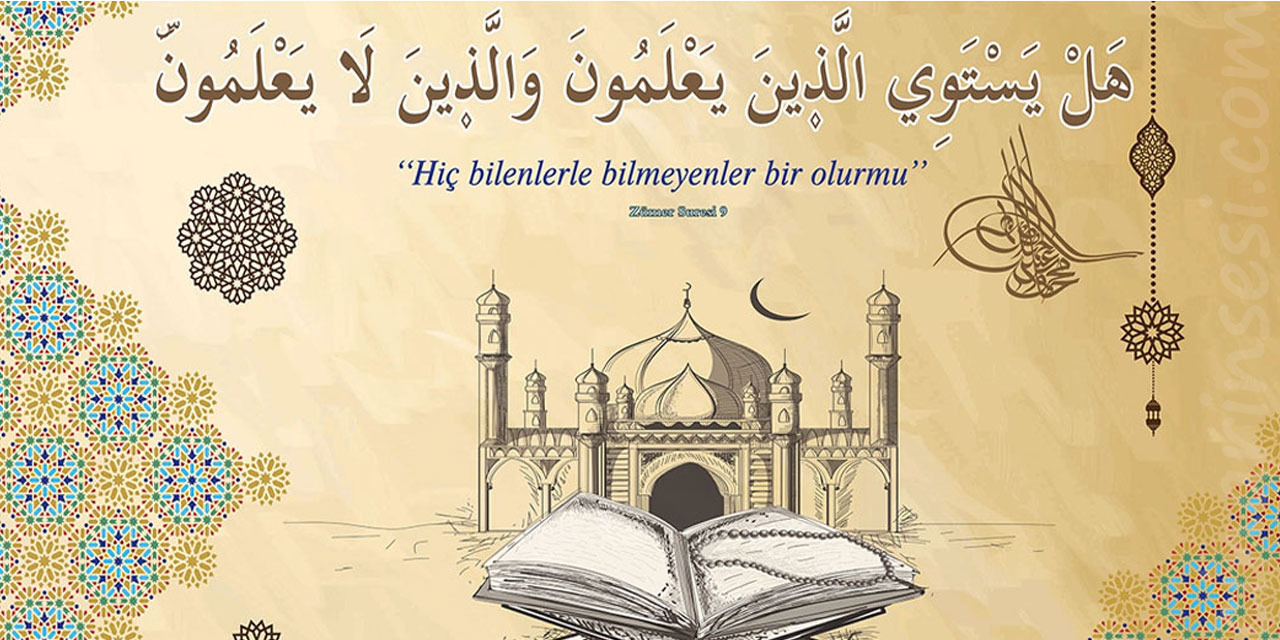 هَلْ يَسْتَوِي الَّذِينَ يَعْلَمُونَ وَالَّذِينَ لَا يَعْلَمُونَّ
‘‘Hiç bilenlerle bilmeyenler bir olurmu’’
Zümer Suresi 9
rinsesi.com